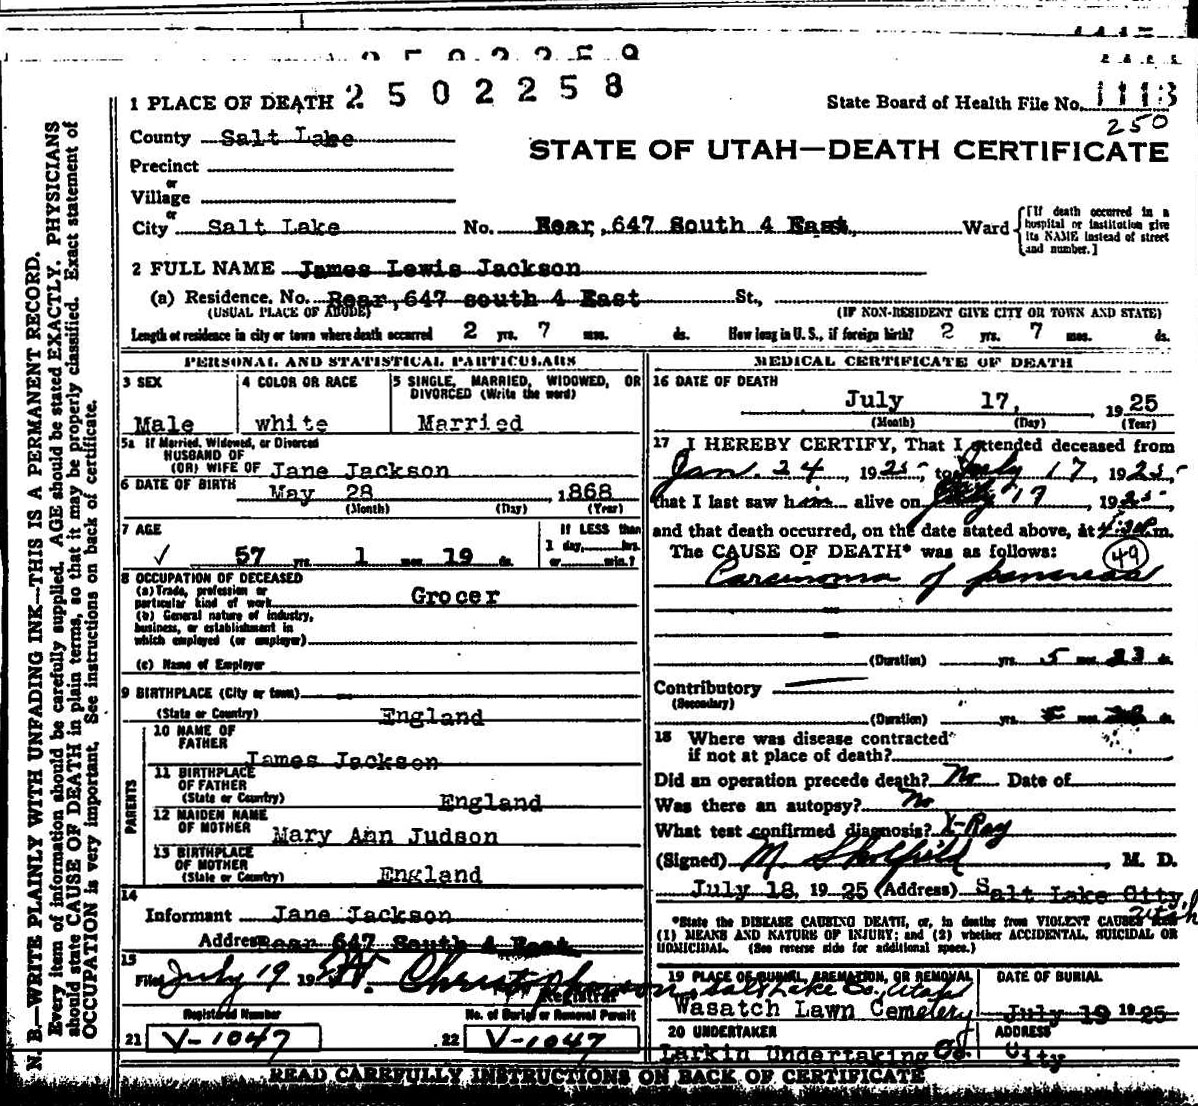 2502259
2502258
State Board of Health File No. 1113
250
STATE OF UTAH—DEATH CERTIFICATE
1 PLACE OF DEATH
County Salt Lake
Precinct
or
Village
or
City Salt Lake No. Rear, 647 South 4 East, Ward
[If death occurred in a hospital or institution give its NAME instead of street and number.]
2 FULL NAME James Lewis Jackson
(a) Residence. No. Rear, 647 south 4 East St.,
(USUAL PLACE OF ABODE) (IF NON-RESIDENT GIVE CITY OR TOWN AND STATE)
Length of residence in city or town where death occurred 2 yrs. 7 mos. ds. How long in U. S., if foreign birth? 2 yrs. 7 mos. ds.
PERSONAL AND STATISTICAL PARTICULARS
3 SEX
Male
4 COLOR OR RACE
white
5 SINGLE, MARRIED, WIDOWED, OR
DIVORCED (Write the word)
Married
5a If Married, Widowed, or Divorced
HUSBAND OF
(OR) WIFE OF Jane Jackson
6 DATE OF BIRTH May 28, 1868
(Month) (Day) (Year)
7 AGE
57 yrs. 1 mos. 19 ds.
If LESS than
1 day, hrs.
or min.?
8 OCCUPATION OF DECEASED
(a) Trade, profession or
particular kind of work Grocer
(b) General nature of industry,
business, or establishment in
which employed (or employer)
(c) Name of Employer
9 BIRTHPLACE (City or town)
(State or Country) England
PARENTS
10 NAME OF
FATHER James Jackson
11 BIRTHPLACE
OF FATHER
(State or Country) England
12 MAIDEN NAME
OF MOTHER Mary Ann Judson
13 BIRTHPLACE
OF MOTHER
(State or Country) England
14
Informant Jane Jackson
Address Rear 647 South 4 East
15
Filed July 19 19
Registrar
Registered Number
21 V-1047
No. of Burial or Removal Permit
22 V-1047
MEDICAL CERTIFICATE OF DEATH
16 DATE OF DEATH
July 17, 1925
(Month) (Day) (Year)
17 I HEREBY CERTIFY, That I attended deceased from
Jan. 24, 1925, to July 17, 1925,
that I last saw him alive on July 17 1925
and that death occurred, on the date stated above, at m.
The CAUSE OF DEATH* was as follows: 49
Carcinoma of pancreas
(Duration) yrs. 5 mos. 23 ds.
Contributory
(Secondary)
(Duration) yrs. mos. ds.
18 Where was disease contracted
if not at place of death?
Did an operation precede death? No Date of
Was there an autopsy? No
What test confirmed diagnosis? X-Ray
(Signed) M. Sholfield, M. D.
July 18, 1925 (Address) Salt Lake City,
Utah
*State the DISEASE CAUSING DEATH, or, in deaths from VIOLENT CAUSES
(1) MEANS AND NATURE OF INJURY; and (2) whether ACCIDENTAL, SUICIDAL OR
HOMICIDAL. (See reverse side for additional space.)
19 PLACE OF BURIAL, CREMATION, OR REMOVAL
Salt Lake Co., Utah
Wasatch Lawn Cemetery
DATE OF BURIAL
July 19 1925
20 UNDERTAKER
Larkin Undertaking Co.
ADDRESS
City
READ CAREFULLY INSTRUCTIONS ON BACK OF CERTIFICATE
N. B.—WRITE PLAINLY WITH UNFADING INK—THIS IS A PERMANENT RECORD.
Every item of information should be carefully supplied. AGE should be stated EXACTLY. PHYSICIANS
should state CAUSE OF DEATH in plain terms, so that it may be properly classified. Exact statement of
OCCUPATION is very important. See instructions on back of certificate.